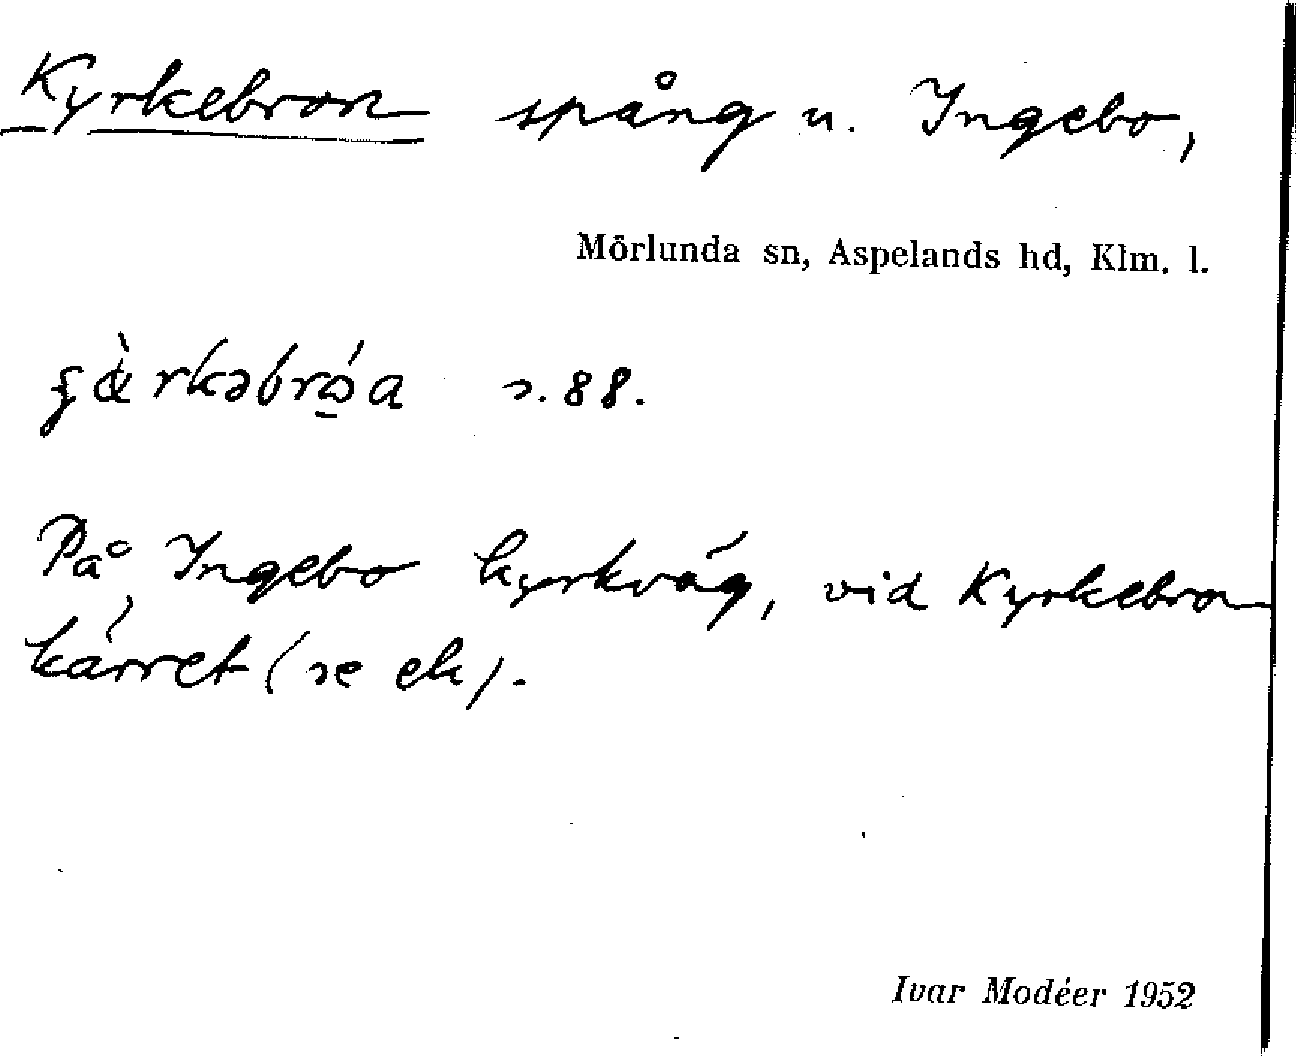 Kyrkebron spång u. Ingebo,
Mörlunda sn, Aspelands hd, Klm. l.
s. 88.
På Ingebo kyrkväg, vid Kyrkebron
kärret (se ek).
Ivar Modéer 1952